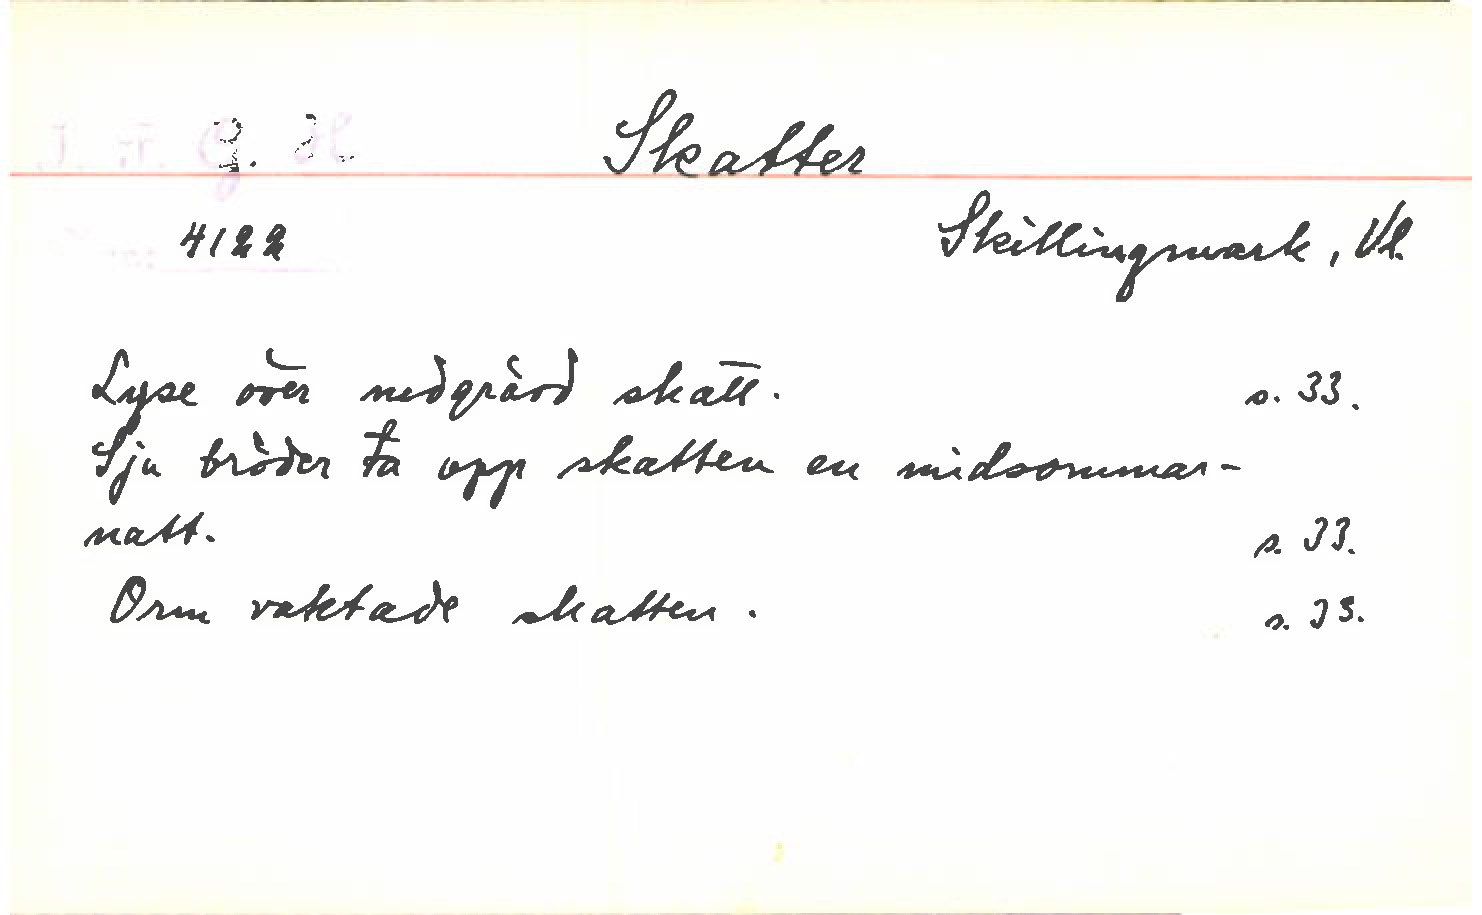 I. F. G. H. Skatter
4122 Skillingmark, Vl.
Lyse över nedgrävd skatt. s. 33.
Sju bröder ta opp skatten en midsommar-
natt. s. 33.
Orm vaktade skatten. s. 33.